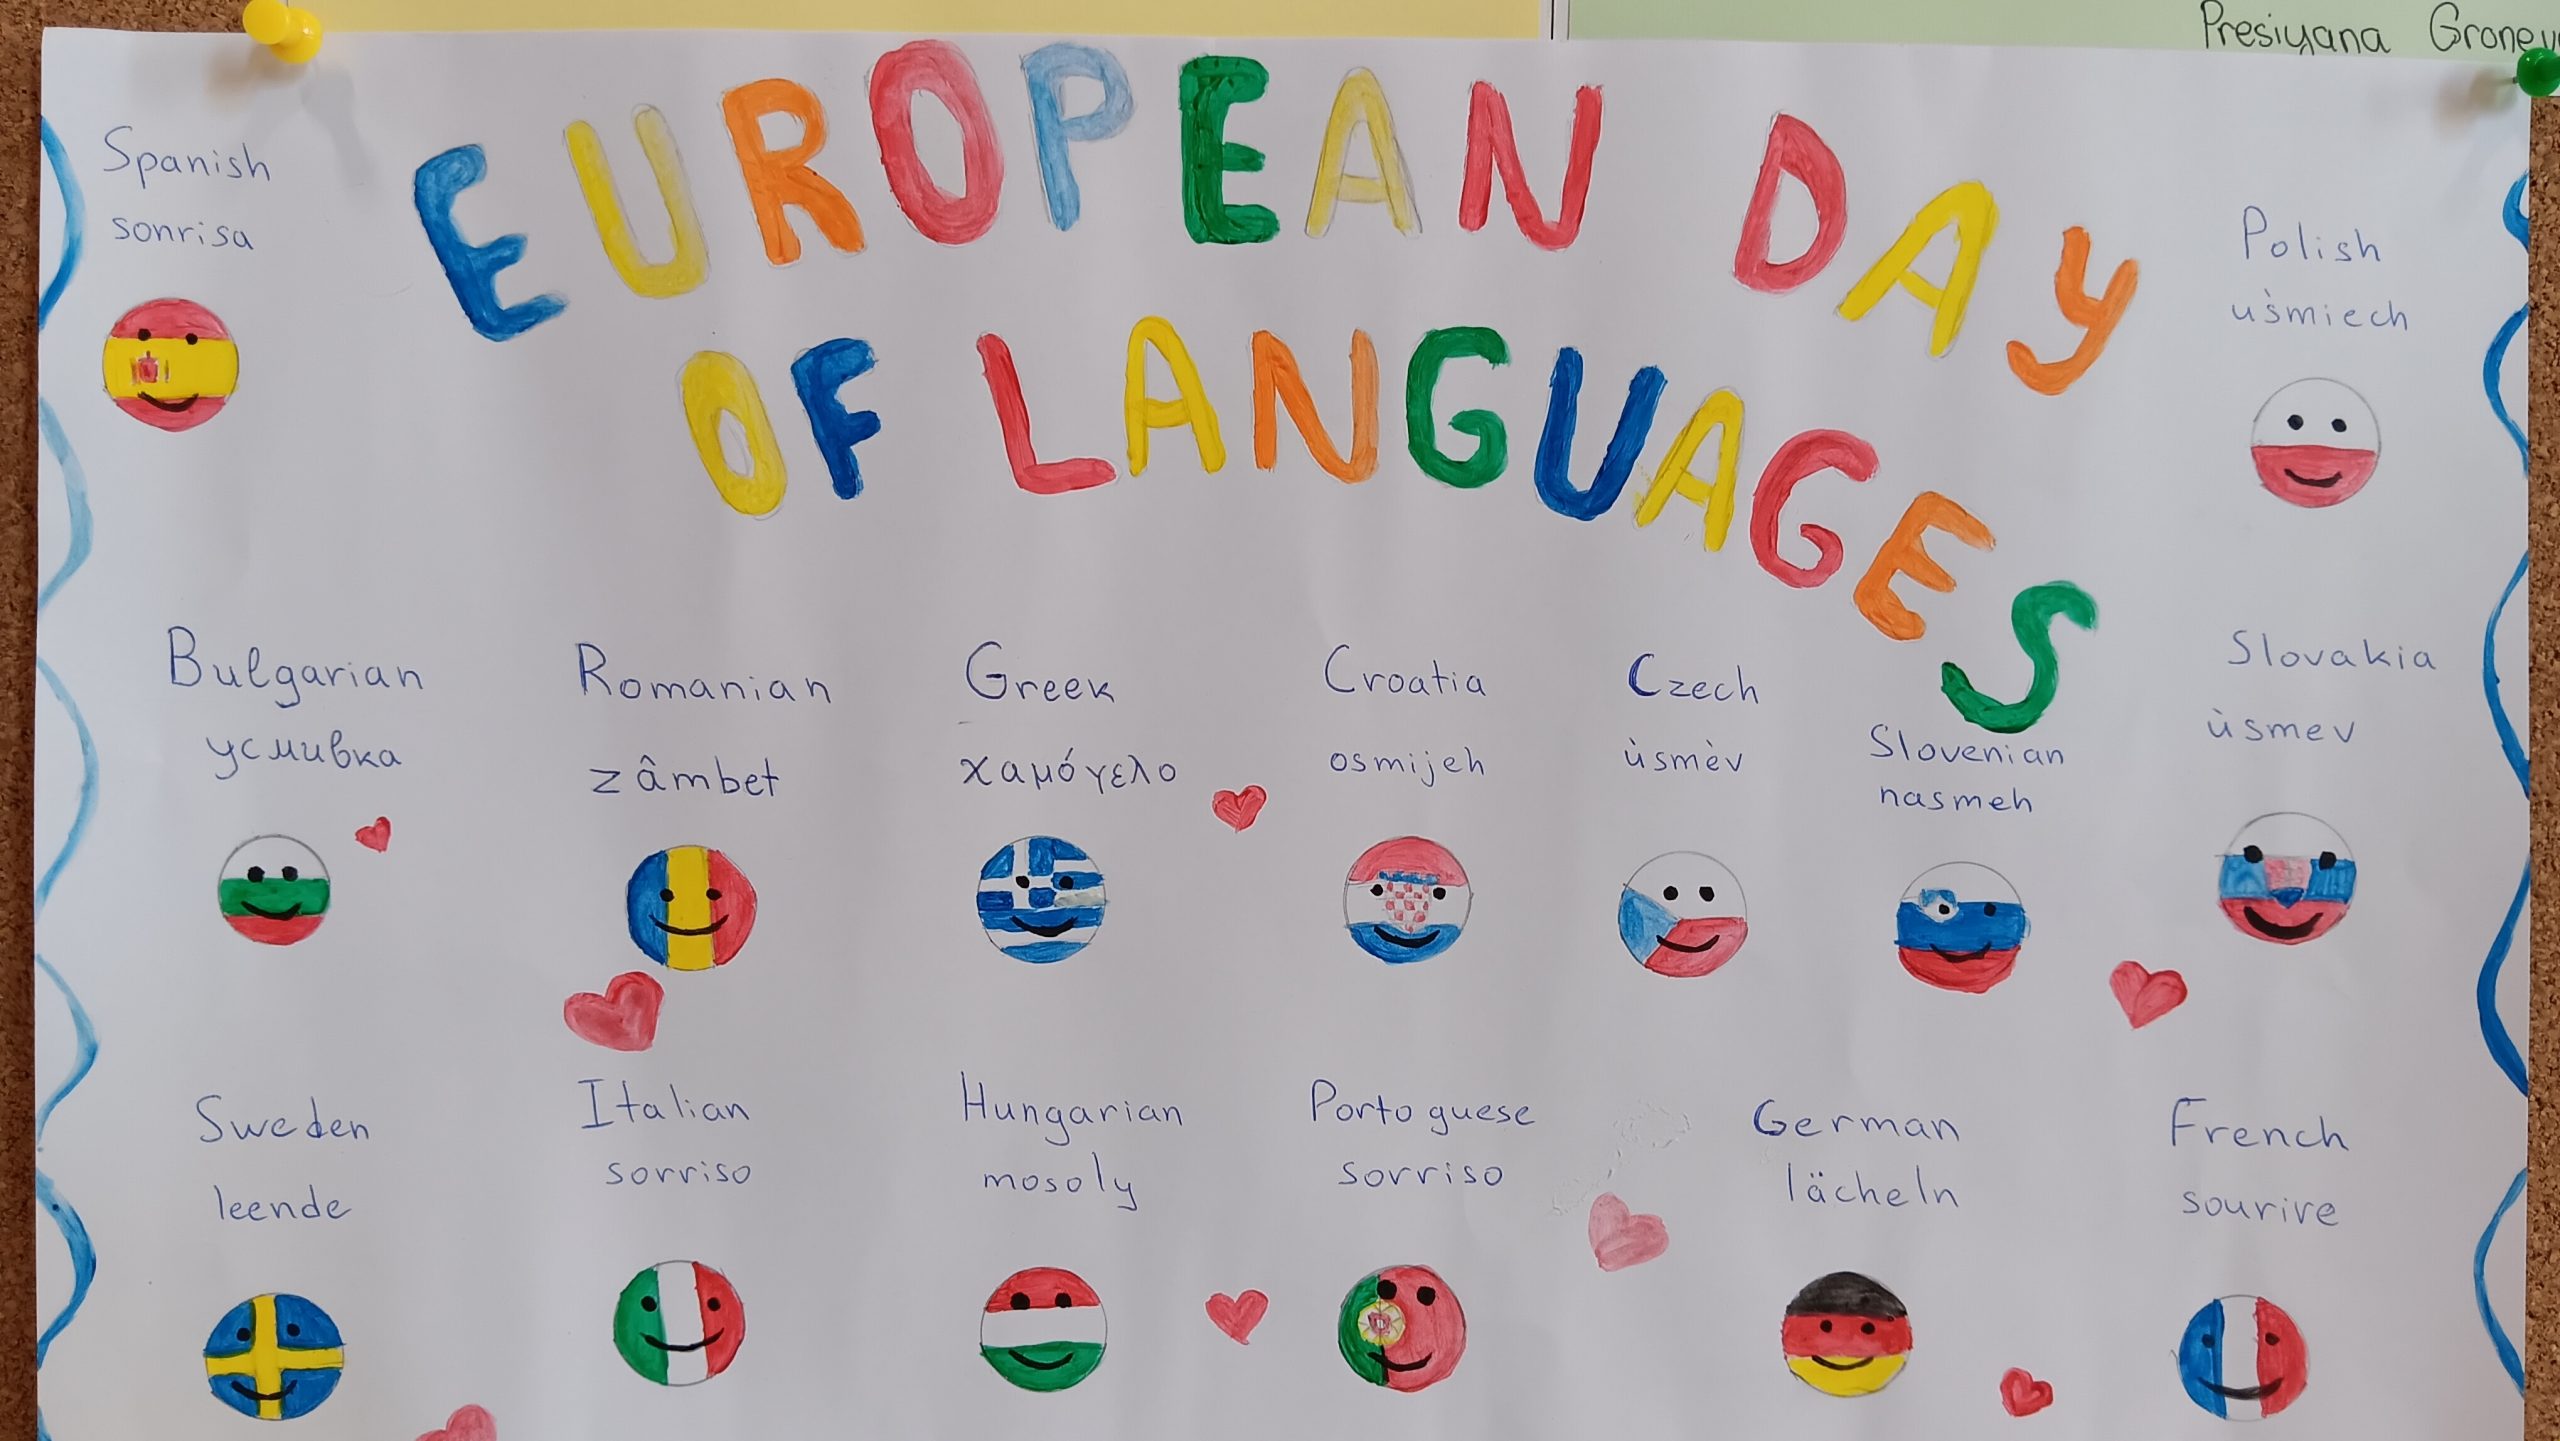 Presiyana Gronev
EUROPEAN DAY
OF LANGUAGES
Spanish
sonrisa
Polish
uśmiech
Bulgarian
усмивка
Romanian
zâmbet
Greek
χαμόγελο
Croatia
osmijeh
Czech
ùsmèv
Slovenian
nasmeh
Slovakia
ùsmev
Sweden
leende
Italian
sorriso
Hungarian
mosoly
Portoguese
sorriso
German
lächeln
French
sourire